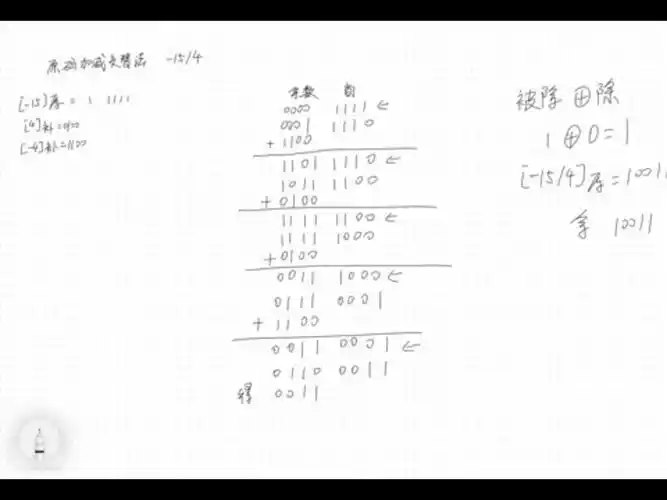 原码加减交替法 -15/4
[-15]原 = 1 1111
[4]补=0100
[-4]补=1100
余数 商
0000 1111 ←
0001 1110
+ 1100
1101 1110 ←
1011 1100
+ 0100
1111 1100 ←
1111 1000
+ 0100
0011 1000 ←
0111 0001
+ 1100
0011 0001 ←
0110 0011
得 0011
被除 ⊕ 除
1 ⊕ 0 = 1
[-15/4]原 = 10011
余 10011